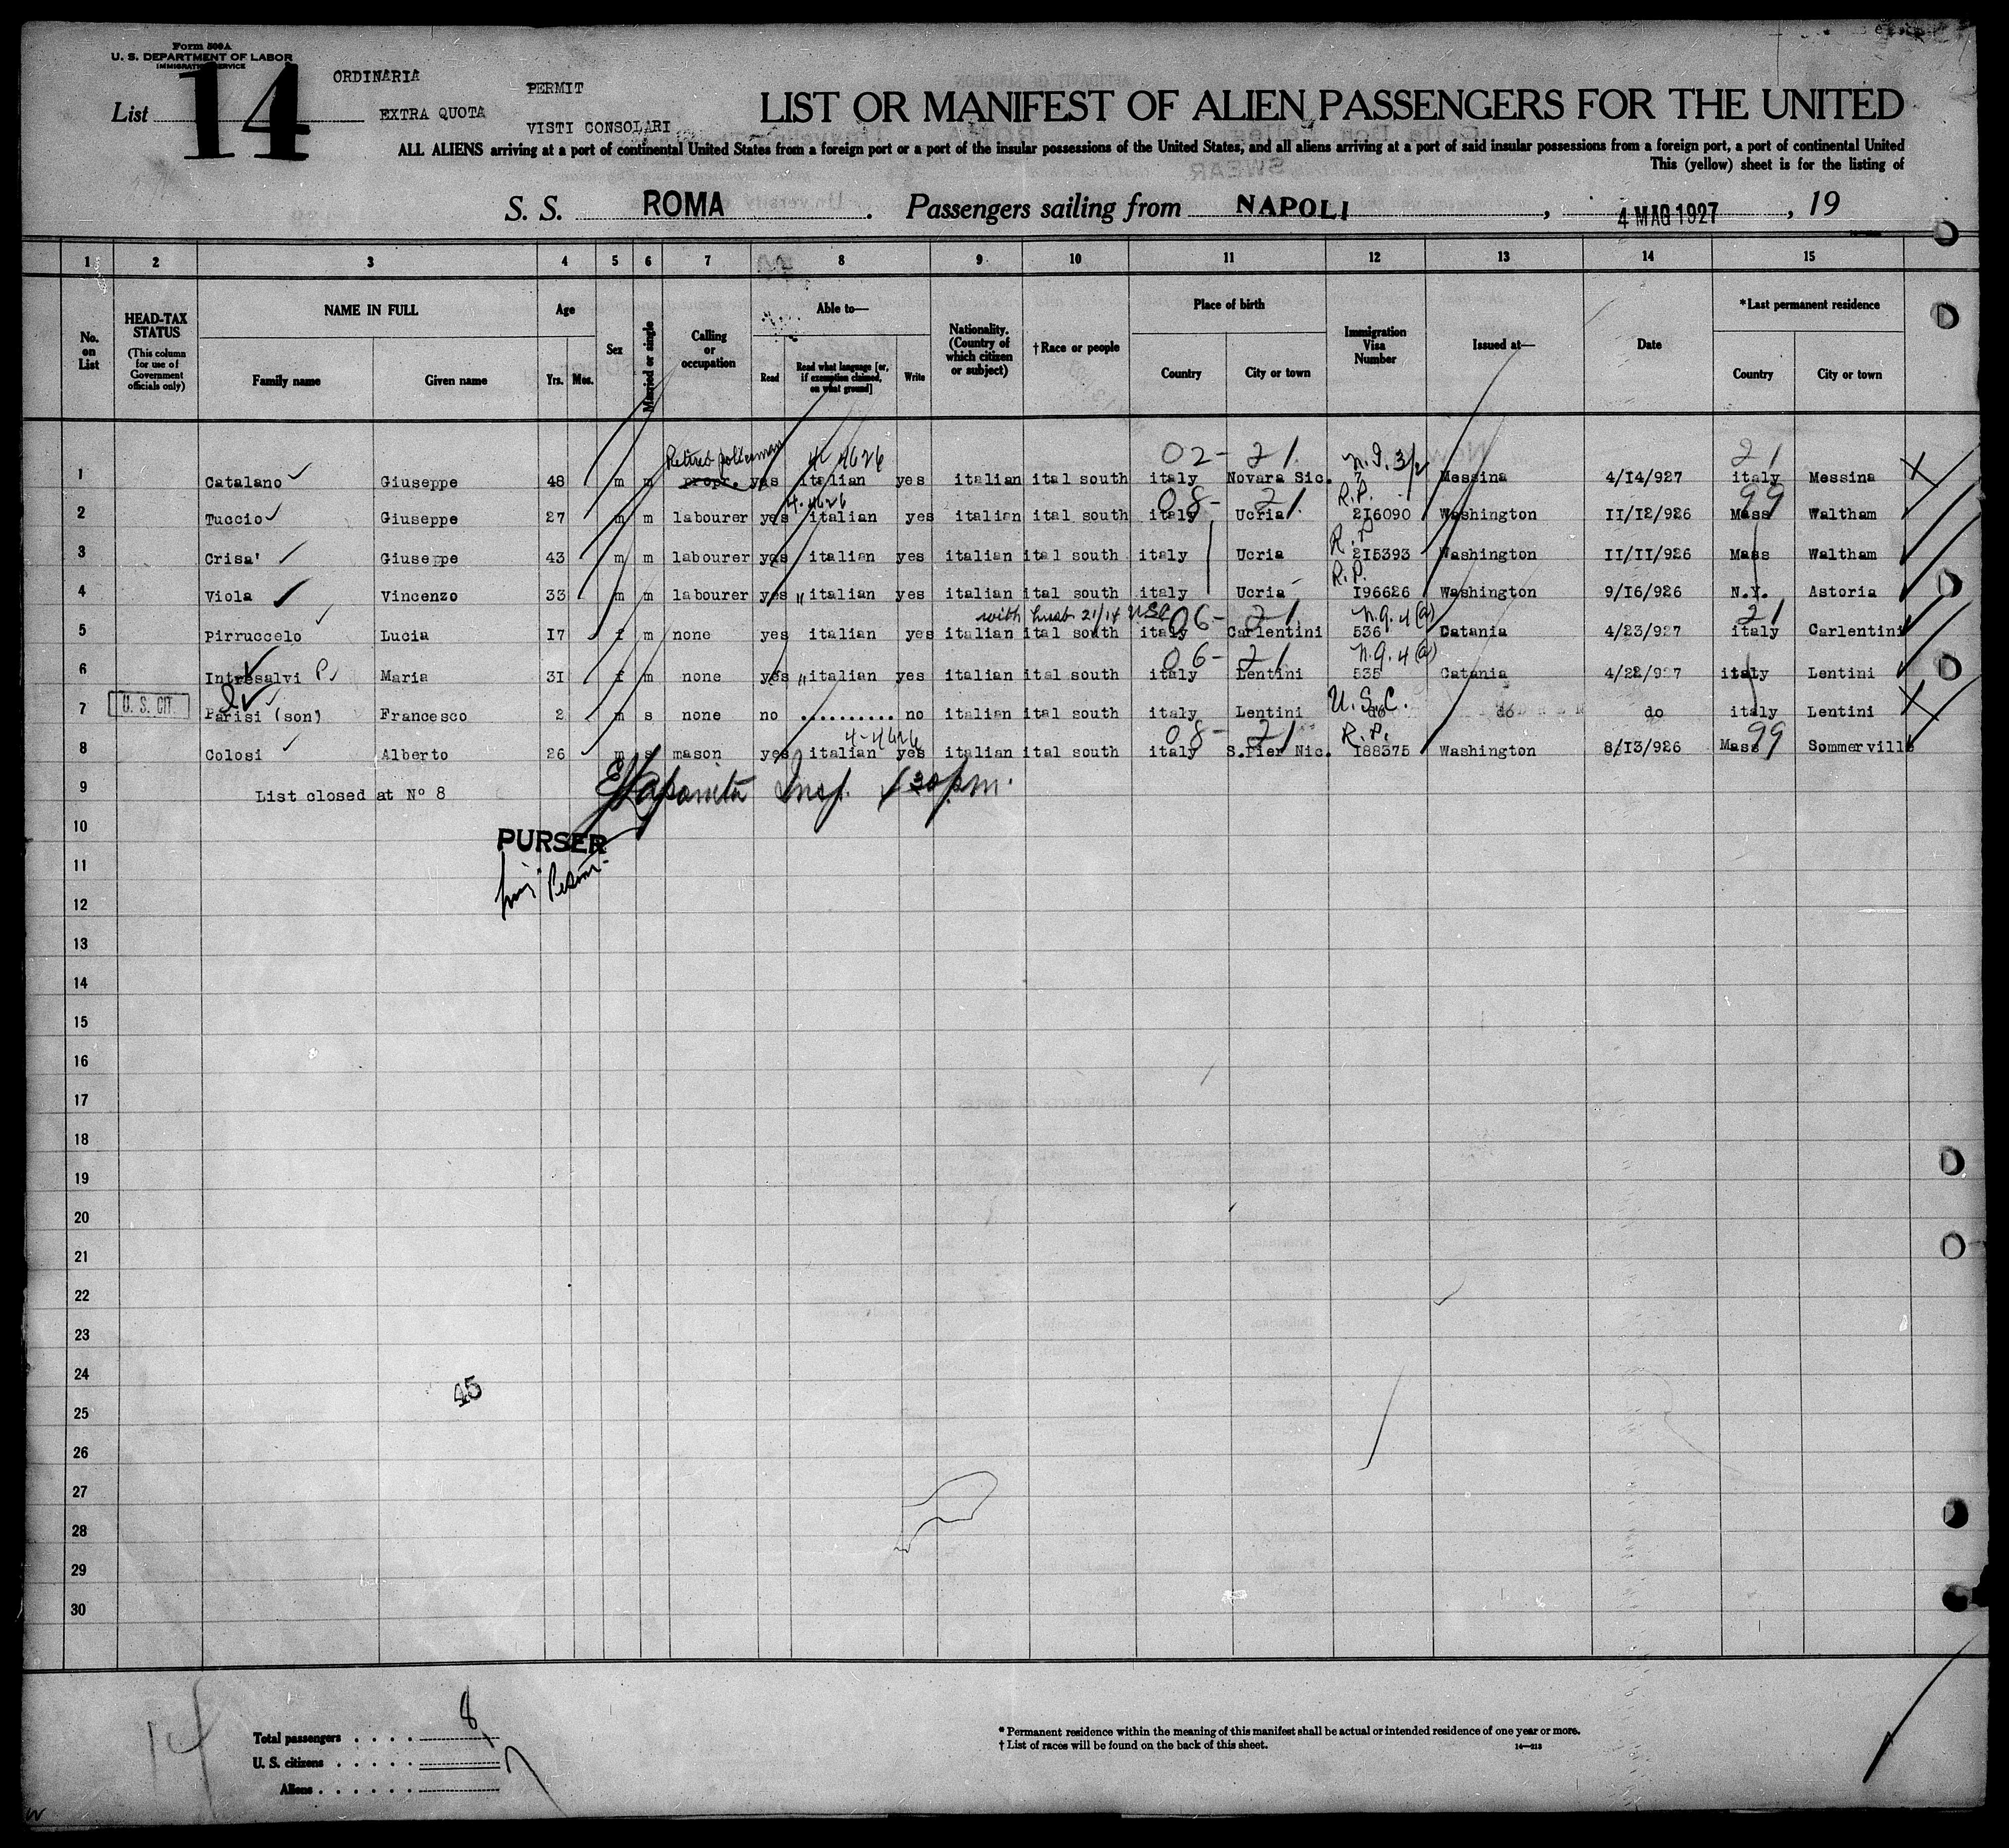 Form 500A
U. S. DEPARTMENT OF LABOR
IMMIGRATION SERVICE
List 14
ORDINARIA
EXTRA QUOTA
PERMIT
VISTI CONSOLARI
LIST OR MANIFEST OF ALIEN PASSENGERS FOR THE UNITED
ALL ALIENS arriving at a port of continental United States from a foreign port or a port of the insular possessions of the United States, and all aliens arriving at a port of said insular possessions from a foreign port, a port of continental United
This (yellow) sheet is for the listing of
S. S. ROMA. Passengers sailing from NAPOLI, 4 MAG 1927, 19
1 2 3 4 5 6 7 8 9 10 11 12 13 14 15
No. on List
HEAD-TAX STATUS (This column for use of Government officials only)
NAME IN FULL
Family name Given name
Age
Yrs. Mos.
Sex
Married or single
Calling or occupation
Able to—
Read Read what language [or, if exemption claimed, on what ground] Write
Nationality. (Country of which citizen or subject)
†Race or people
Place of birth
Country City or town
Immigration Visa Number
Issued at—
Date
*Last permanent residence
Country City or town
Retired policeman 4-4626 02- 21 N.Q. 3/2 21
1 Catalano Giuseppe 48 m m propr. yes italian yes italian ital south italy Novara Sic. 7 Messina 4/14/927 italy Messina
4-4626 08- 21 R.P. 99
2 Tuccio Giuseppe 27 m m labourer yes italian yes italian ital south italy Ucria 216090 Washington 11/12/926 Mass Waltham
R.P.
3 Crisa' Giuseppe 43 m m labourer yes italian yes italian ital south italy Ucria 215393 Washington 11/11/926 Mass Waltham
R.P.
4 Viola Vincenzo 33 m m labourer yes " italian yes italian ital south italy Ucria 196626 Washington 9/16/926 N.Y. Astoria
with husb 21/14 USA 06- 21 N.Q. 4(a) 21
5 Pirruccelo Lucia 17 f m none yes italian yes italian ital south italy Carlentini 536 Catania 4/23/927 italy Carlentini
06- 21 N.Q. 4(a)
6 Intresalvi P. Maria 31 f m none yes " italian yes italian ital south italy Lentini 535 Catania 4/22/927 italy Lentini
U. S. CIT. U.S.C.
7 Parisi (son) Francesco 2 m s none no .......... no italian ital south italy Lentini do do do italy Lentini
4-4626 08- 21 R.P. 99
8 Colosi Alberto 26 m s mason yes italian yes italian ital south italy S.Pier Nic. 188375 Washington 8/13/926 Mass Sommerville
9 List closed at Nº 8 Insp. 130 pm.
10
PURSER
11
12
13
14
15
16
17
18
19
20
21
22
23
24
45
25
26
27
28
29
30
14
Total passengers . . . . 8
U. S. citizens . . . . .
Aliens . . . . . .
* Permanent residence within the meaning of this manifest shall be actual or intended residence of one year or more.
† List of races will be found on the back of this sheet.
14—213